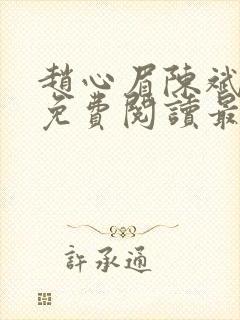 趙心眉陳斌
免費閱讀最
許承通